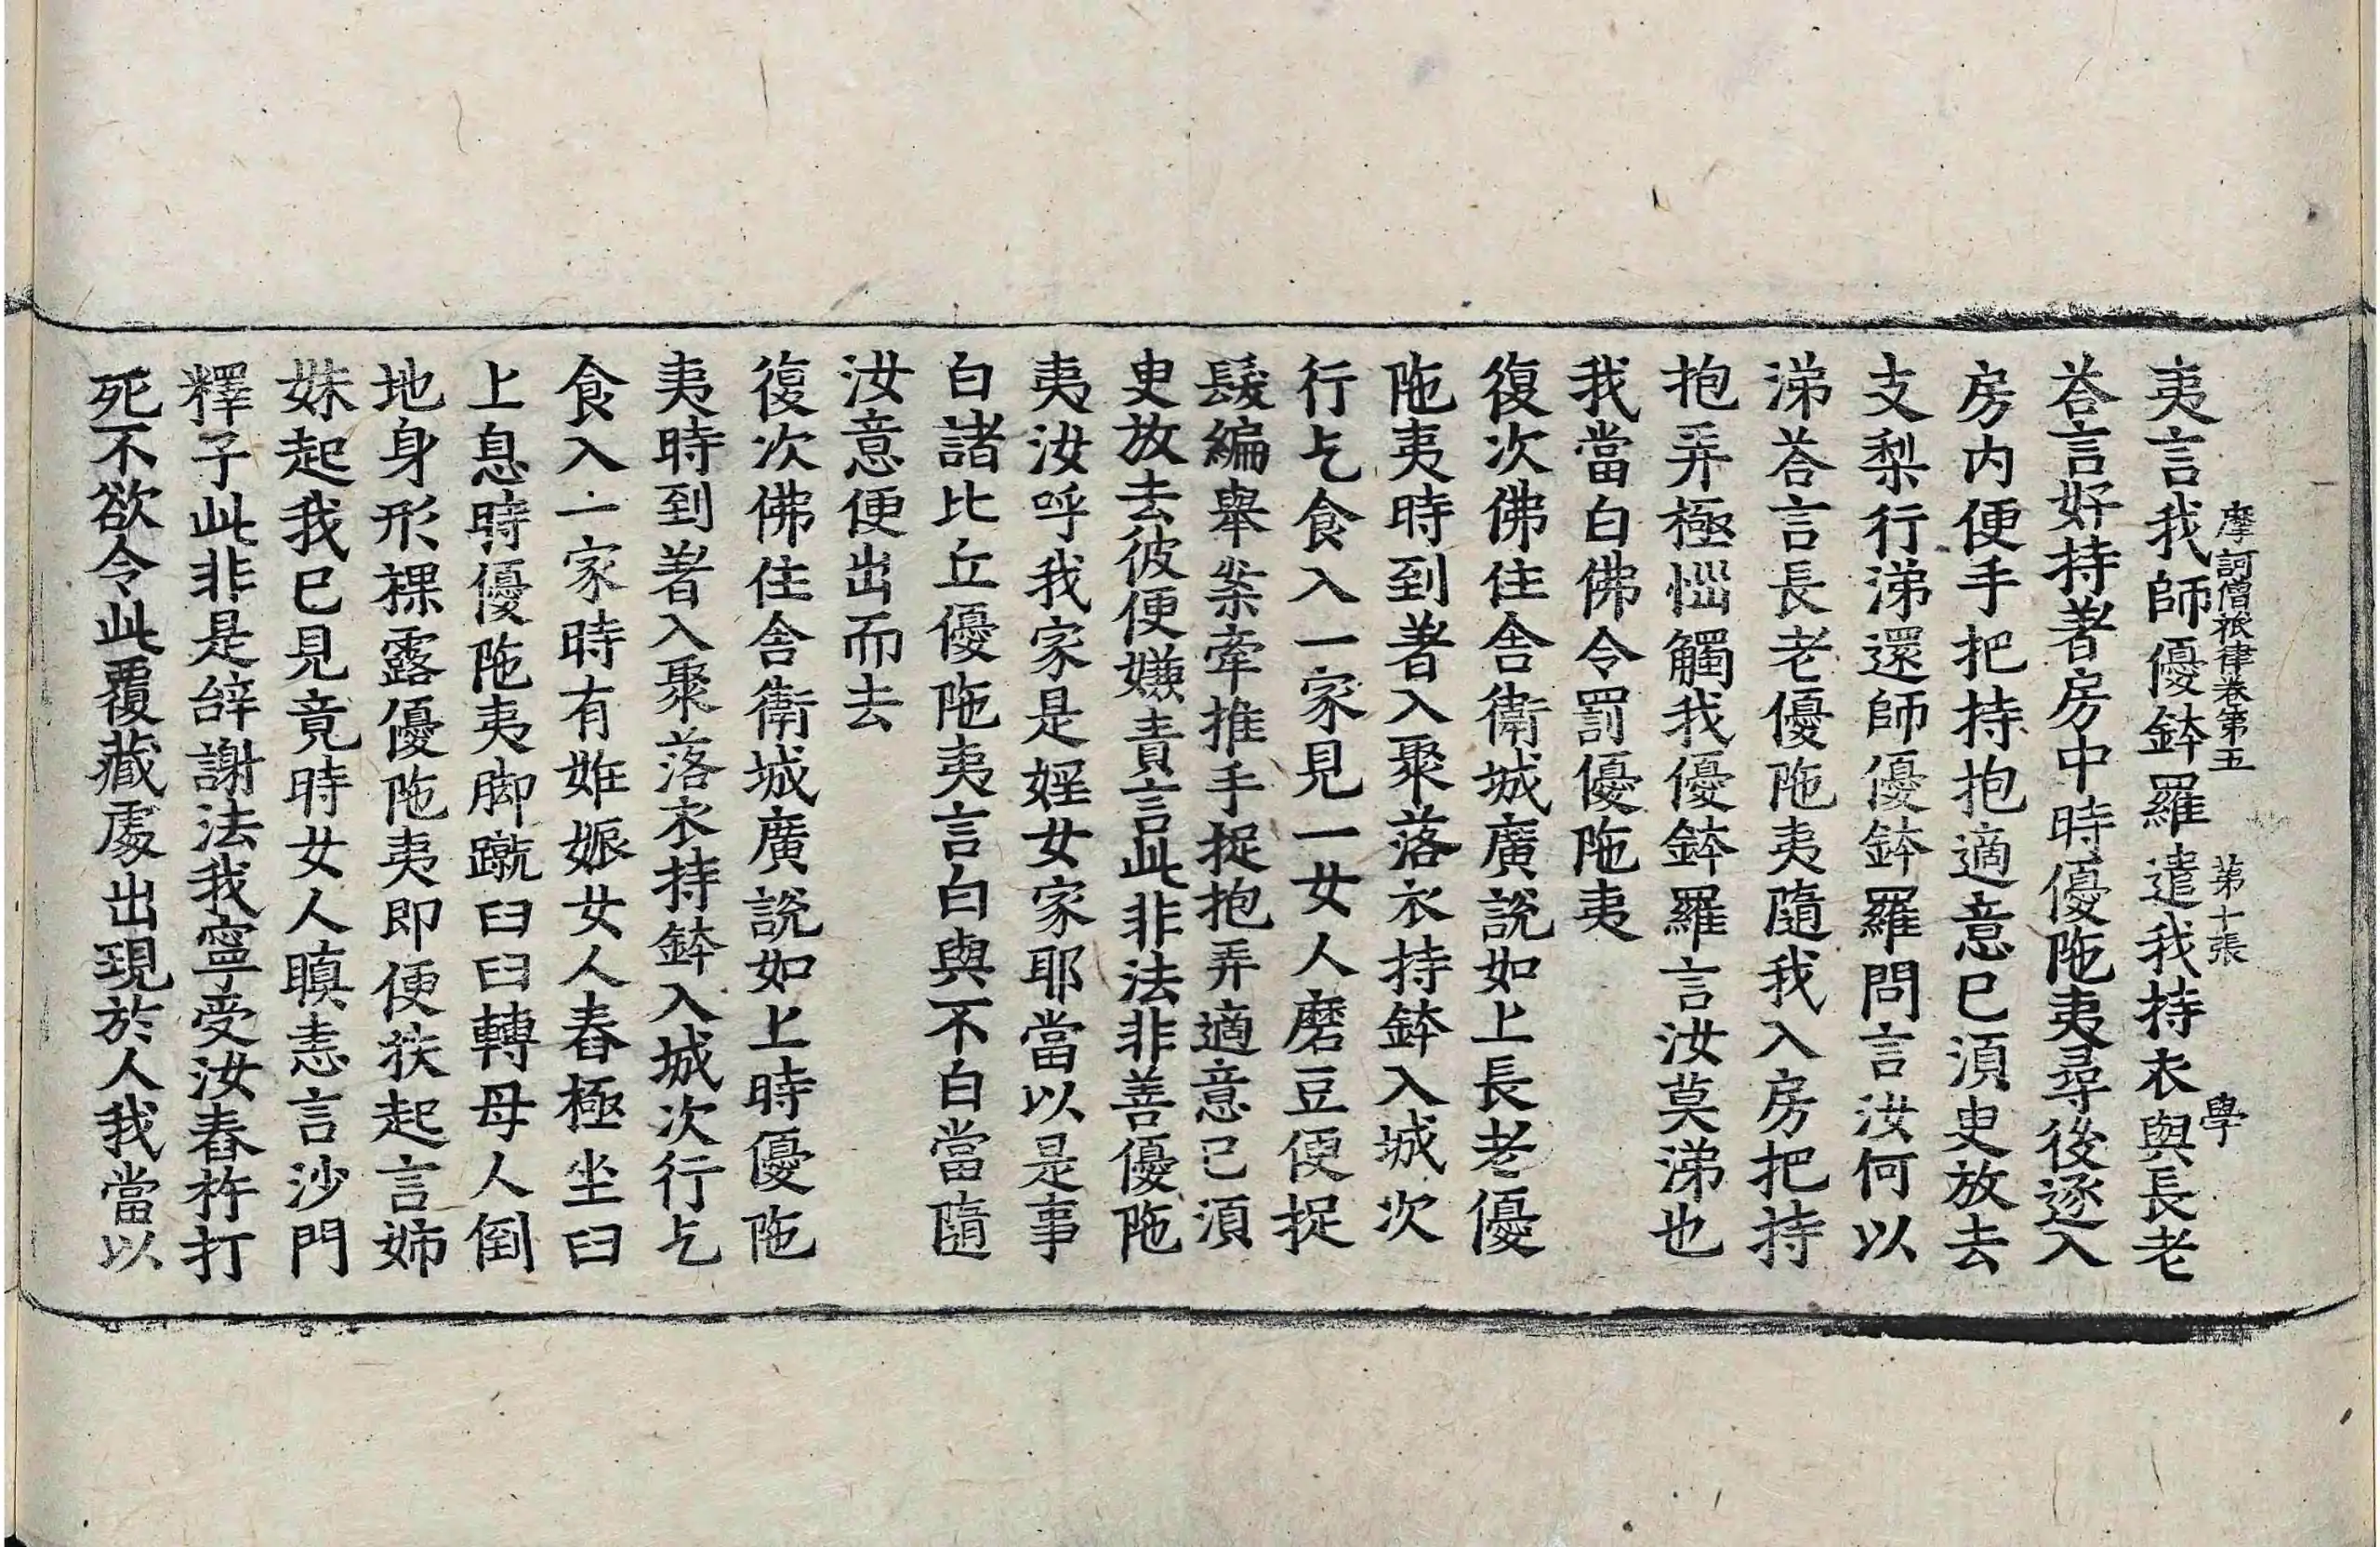 摩訶僧祇律卷第五 第十張 學
夷言我師優鉢羅遣我持衣與長老
荅言好持著房中時優陁夷尋後逐入
房内便手把持抱適意已湏臾放去
支梨行涕還師優鉢羅問言汝何以
涕荅言長老優陁夷隨我入房把持
抱弄極惱觸我優鉢羅言汝莫涕也
我當白佛令罰優陁夷
復次佛住舍衛城廣說如上長老優
陁夷時到著入聚落衣持鉢入城次
行乞食入一家見一女人磨豆便捉
髮編舉案牽推手捉抱弄適意已湏
臾放去彼便嫌責言此非法非善優陁
夷汝呼我家是婬女家耶當以是事
白諸比丘優陁夷言白與不白當隨
汝意便出而去
復次佛住舍衛城廣說如上時優陁
夷時到著入聚落衣持鉢入城次行乞
食入一家時有妊娠女人舂極坐臼
上息時優陁夷脚蹴臼臼轉母人倒
地身形裸露優陁夷即便扶起言姊
妹起我已見竟時女人瞋恚言沙門
釋子此非是辝謝法我寧受汝舂杵打
死不欲令此覆藏處出現於人我當以